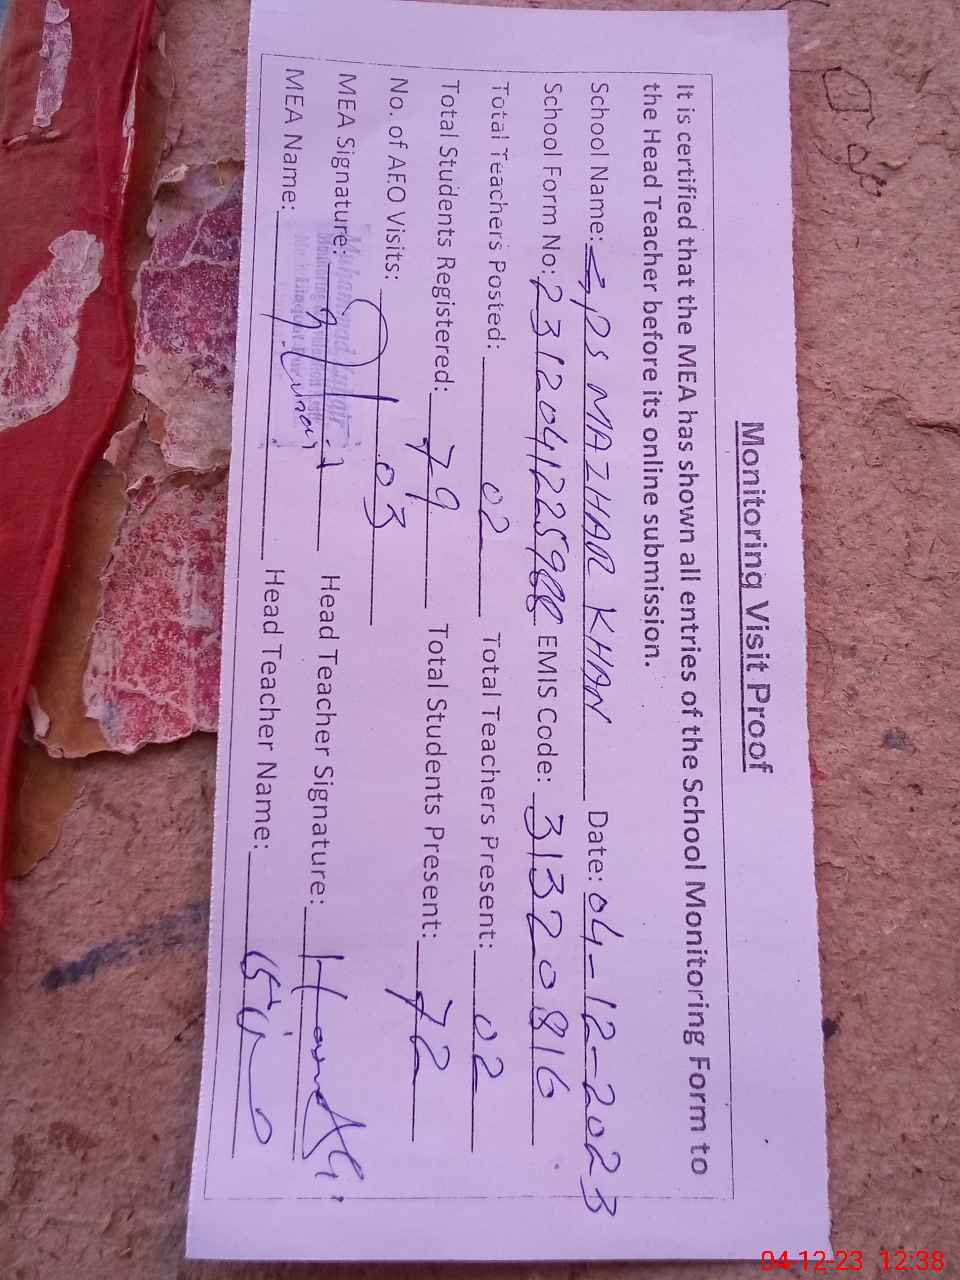 Monitoring Visit Proof
It is certified that the MEA has shown all entries of the School Monitoring Form to
the Head Teacher before its online submission.
School Name: G, PS MAZHAR KHAN Date: 04-12-2023
School Form No: 2312041225988 EMIS Code: 31320816
Total Teachers Posted: 02 Total Teachers Present: 02
Total Students Registered: 79 Total Students Present: 72
No. of AEO Visits: 03
MEA Signature: Head Teacher Signature:
MEA Name: Head Teacher Name:
04-12-23 12:38